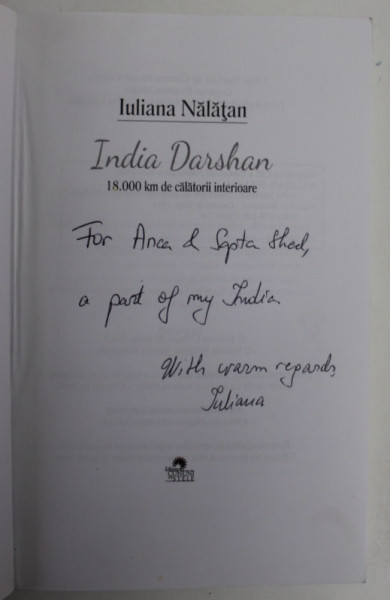 Iuliana Nălăţan
India Darshan
18.000 km de călătorii interioare
For Anca & Sapta Shed,
a part of my India
With warm regards,
Iuliana